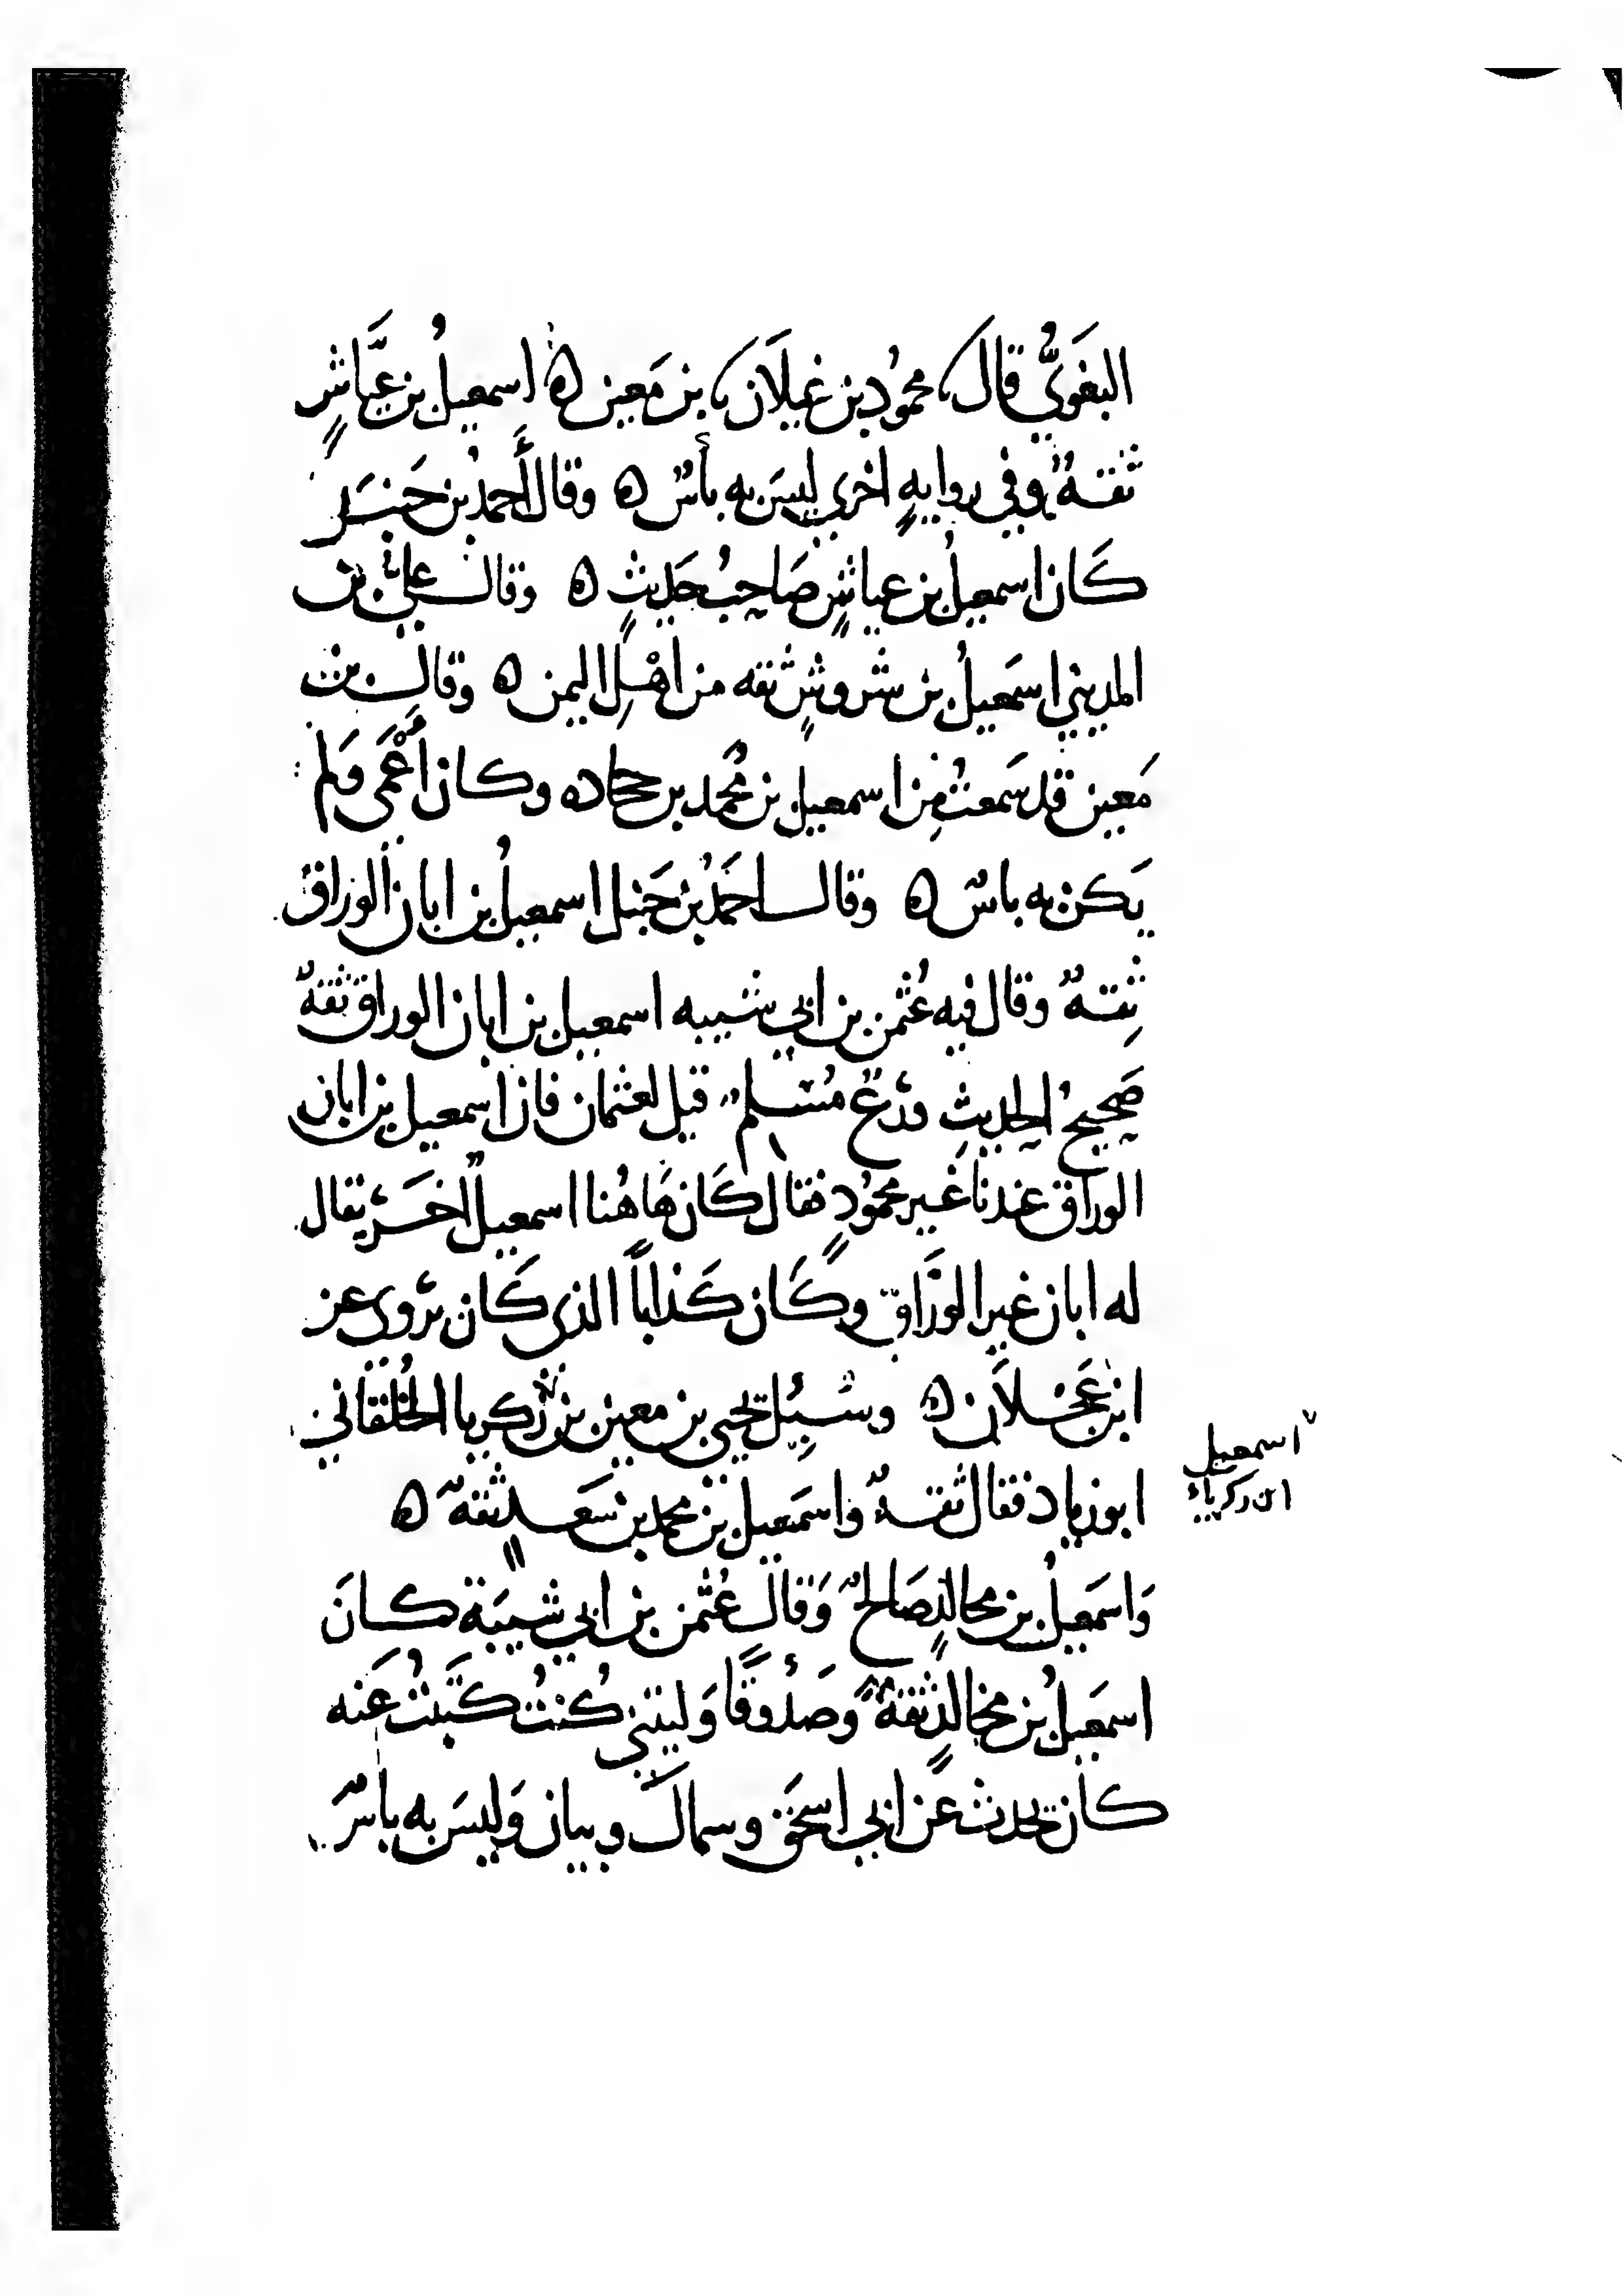 البغَويُّ قال ، محمُود بن غيلَان ، بن مَعين ه اسمعيلُ بن عيَّاشٍ
ثقةٌ وفي روايهٍ اخرى ليسَ به بأسٌ ه وقال أَحمدُ بن حَنبَل
كَان اسمعيلُ بن عياشٍ صَاحِبُ حَديثٍ ه وقال علي بن
المديني اسمَعيلُ بن شروشٍ ثقه من اهْلِ اليمن ه وقال بن
مَعين قد سَمعتُ مِن اسمعيل بن مُحمد بن جحاده وكان أَعْمَى وَلم
يَكن به باسٌ ه وقال احمَدُ بن حَنبل اسمعيلُ بن ابان الوراق
ثِقةٌ وقال فيه عُثمن بن ابي شيبه اسمعيل بن ابان الوراق ثقةٌ
صَحيحُ الحديثِ وَرعٌ مُسلم قيل لعثمان فان اسمعيل بن ابان
الوراق عندنا غَير محمُودٍ فقال كَان هَاهُنا اسمعيلٌ اخَر يُقال
له ابان غير الورَّاق وكَان كَذاباً الذى كَان يَروى عن
ابن عَجلَان ه وسُئِل يحيى بن معين بن زكريا الخُلقاني
ابو زياد فقال ثقةٌ واسمَعيل بن محمد بن سَعدٍ ثقةٌ ه
وَاسمَعيلُ بن مجالدٍ صَالحٌ وَقالَ عُثمن بن ابي شيبَة كانَ
اسمعَيلُ بن مجالدٍ ثقةً وصَدُوقًا وَليتني كُنْتُ كتَبتُ عَنه
كان يحدث عَن ابي اسحَق وسماك وبيان وَليسَ به باسٌ
اسمعيل
ابن زكرياء